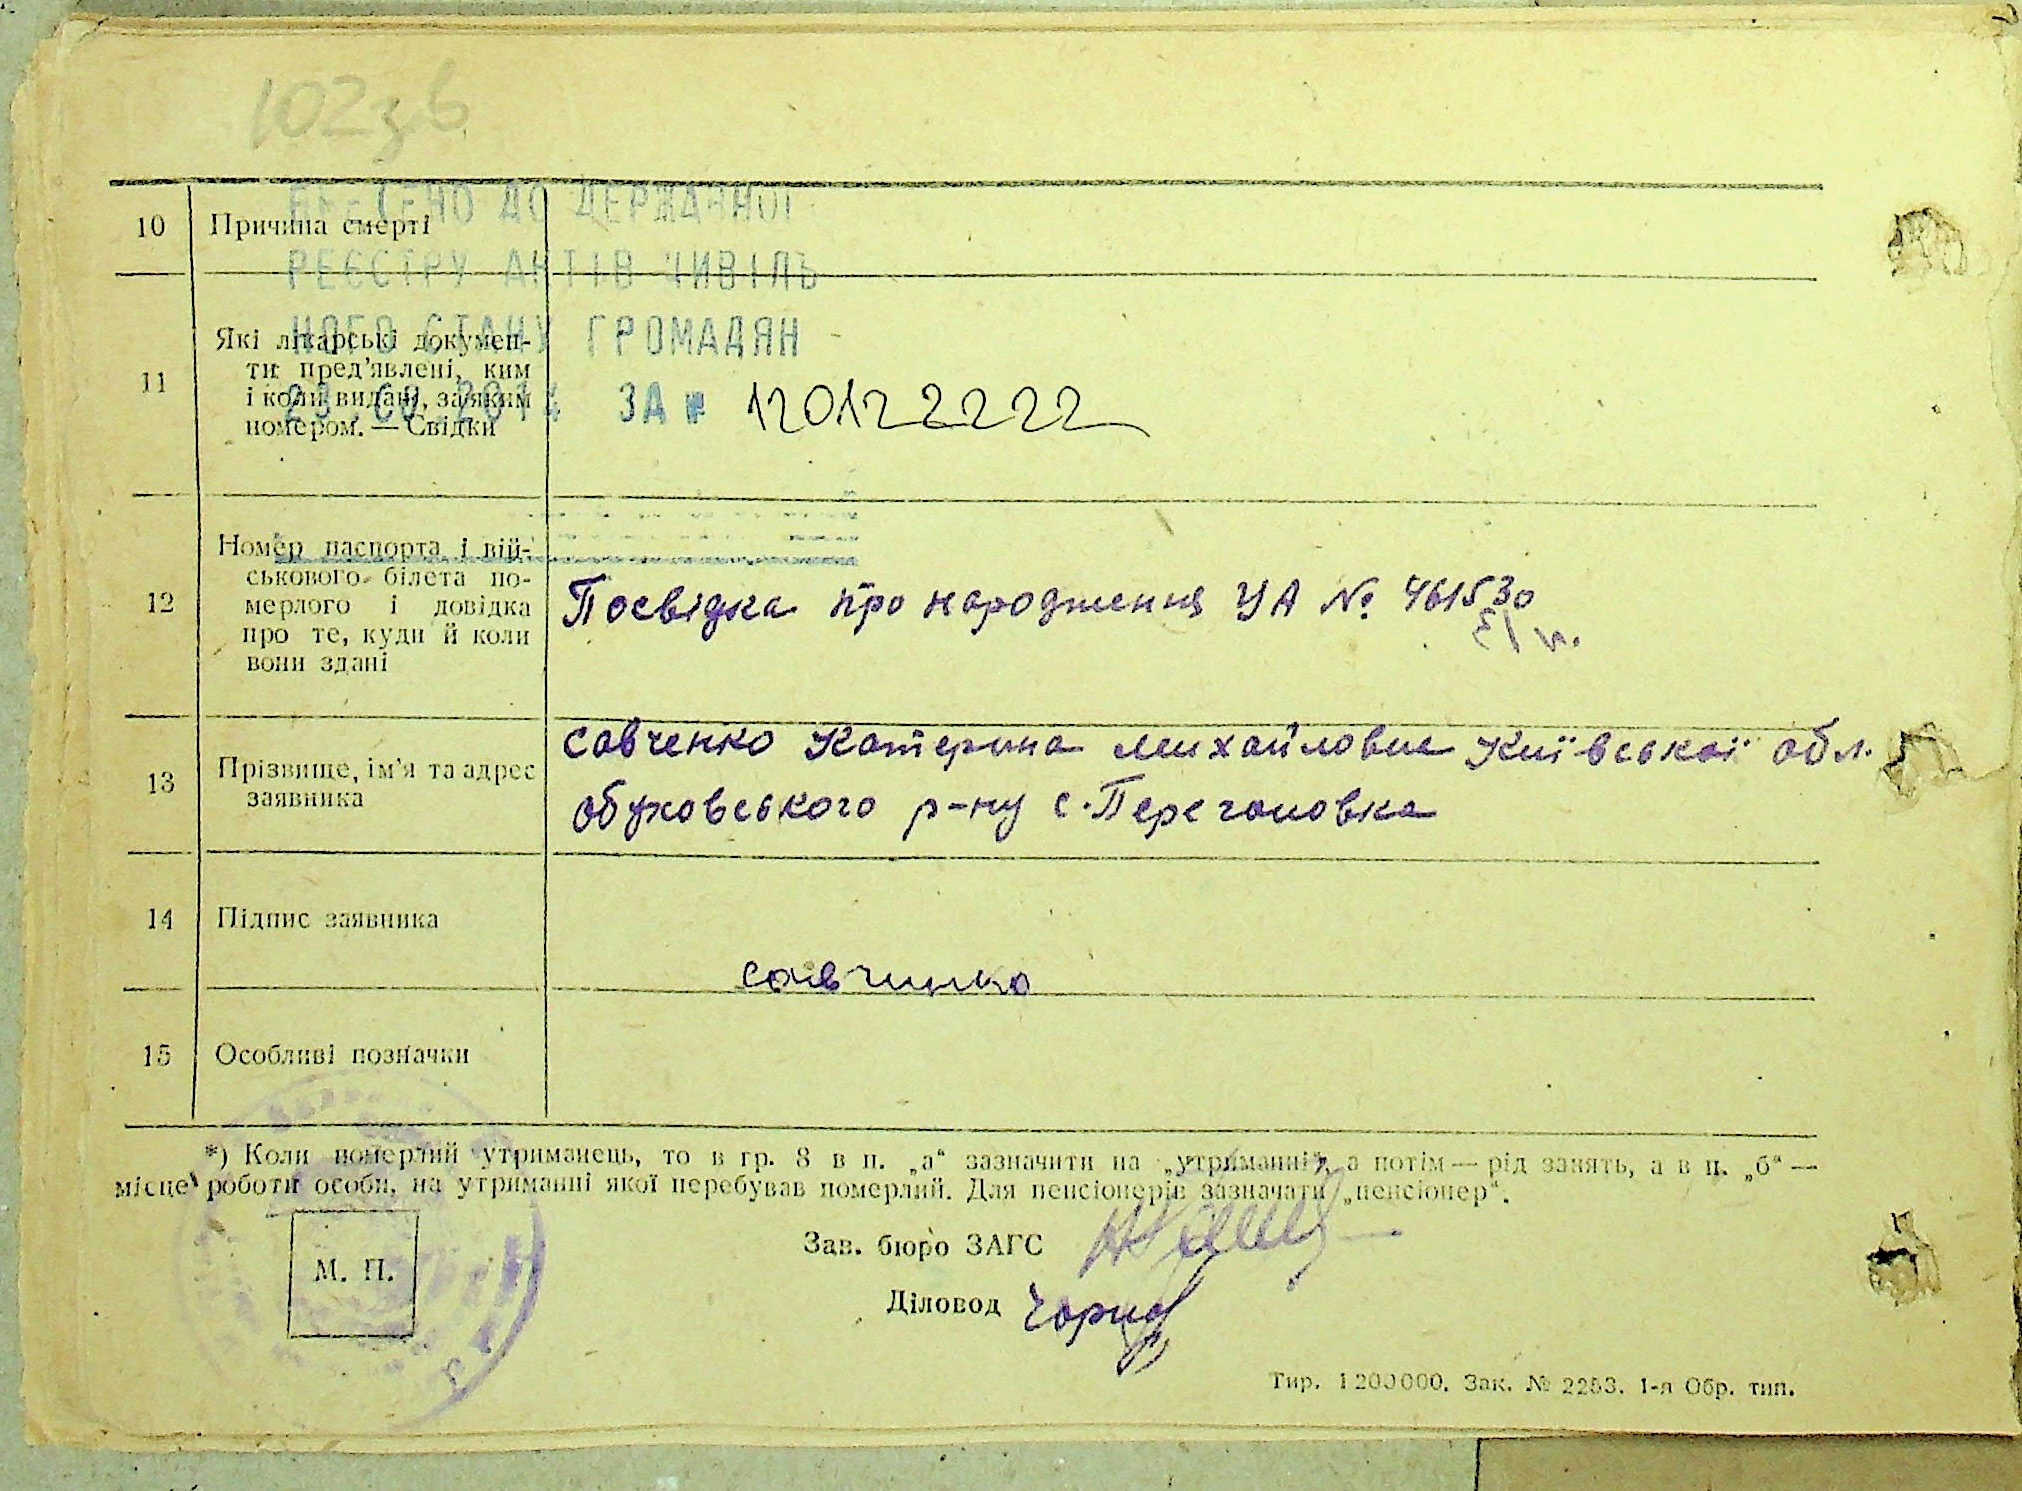 102зв
ВНЕСЕНО ДО ДЕРЖАВНОГО
10 Причина смерті
РЕЄСТРУ АКТІВ ЦИВІЛЬ
НОГО СТАНУ ГРОМАДЯН
11 Які лікарські докумен-
ти пред'явлені, ким
і коли видані, за яким
номером. — Свідки
2014 ЗА № 120122222
12 Номер паспорта і вій-
ськового білета по-
мерлого і довідка
про те, куди й коли
вони здані
Посвідка про народження УА № 461530
13 Прізвище, ім'я та адрес
заявника
Савченко Катерина Михайловна Київської обл.
Обуховського р-ну с. Перегоновка
14 Підпис заявника
савчинко
15 Особливі позначки
*) Коли померлий утриманець, то в гр. 8 в п. „а“ зазначити на „утриманні“, а потім — рід занять, а в п. „б“ —
місце роботи особи, на утриманні якої перебував померлий. Для пенсіонерів зазначати „пенсіонер“.
М. П.
Зав. бюро ЗАГС
Діловод
Тир. 1200000. Зак. № 2253. 1-я Обр. тип.